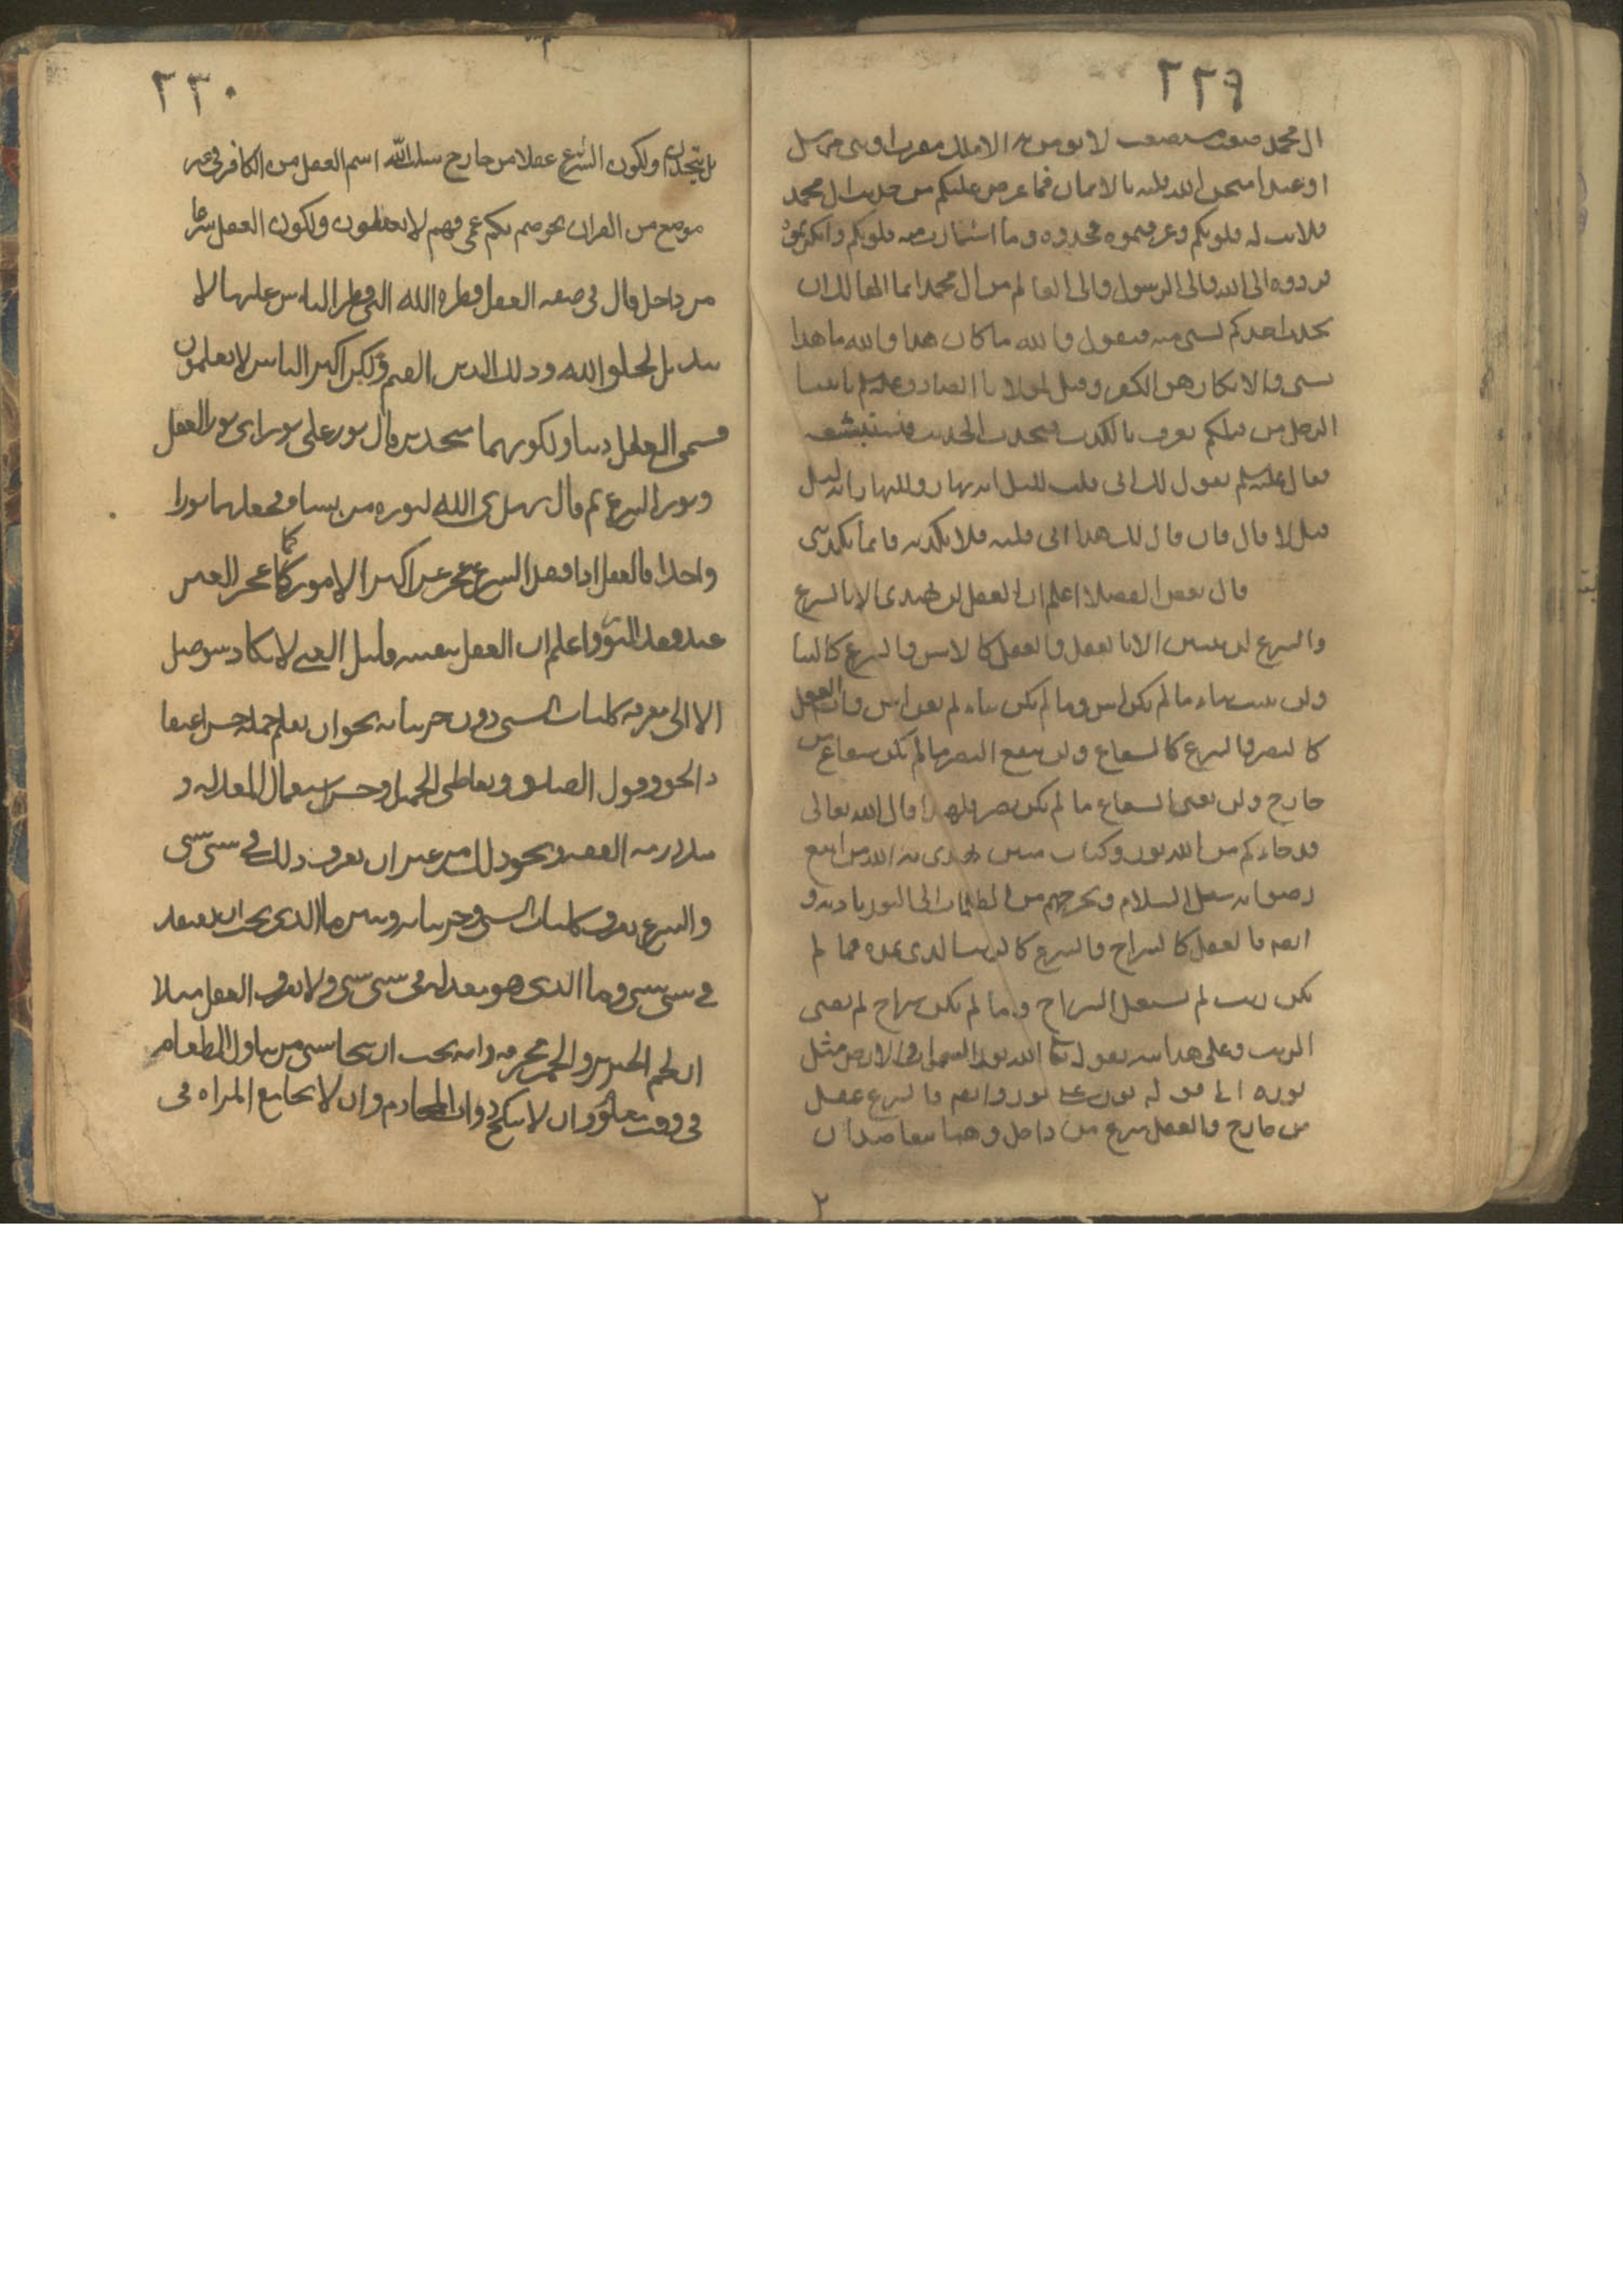 ٢٢٩
ال محمد صعب مستصعب لا يومن به الا ملك مقرب او نبى مرسل
او عبد امتحن الله قلبه بالايمان فما عرض عليكم من حديث ال محمد
فلانت له قلوبكم وعرفتموه فخذوه وما اشمازت منه قلوبكم وانكرتموه
فردوه الى الله والى الرسول والى العالم من ال محمد انما الهالك ان
يحدث احدكم بشى منه فيقول والله ما كان هذا والله ما هذا
بشى والانكار هو الكفر وقيل لمولانا الصادق عليه السلم ياتينا
الرجل من قبلكم يعرف بالكذب فيحدث الحديث فنستبشعه
فقال عليه السلم يقول لك انى قلت لليل انه نهار وللنهار انه ليل
قيل لا قال فان قال لك هذا انى قلته فلا تكذبه فانما تكذبنى
قال بعض الفضلا اعلم ان العقل لن يهتدى الا بالشرع
والشرع لن يتبين الا بالعقل والعقل كالاس والشرع كالبنا
ولن يثبت بناء ما لم يكن اس وما لم يكن بناء لم يغن اس وايضا العقل
كالبصر والشرع كالشعاع ولن ينفع البصر ما لم يكن شعاع من
خارج ولن يغنى الشعاع ما لم يكن بصر فلهذا قال الله تعالى
قد جاءكم من الله نور وكتاب مبين يهدى به الله من اتبع
رضوانه سبل السلام ويخرجهم من الظلمات الى النور باذنه و
ايضا فالعقل كالسراج والشرع كالزيت الذى يمده فما لم
يكن زيت لم يشعل السراج وما لم يكن سراج لم يغنى
الزيت وعلى هذا نبه بقوله تعا الله نور السموات والارض مثل
نوره الى قوله نور على نور وايضا فالشرع عقل
من خارج والعقل شرع من داخل وهما متعاضدان
٢
٢٣٠
بل يتحدان ولكون الشرع عقلا من خارج سلب الله اسم العقل من الكافر فى غير
موضع من القران نحو صم بكم عمى فهم لا يعقلون ولكون العقل شرعا
من داخل قال فى صفه العقل فطره الله التى فطر الناس عليها لا
تبديل لخلق الله وذلك الدين القيم ولكن اكثر الناس لا يعلمون
فسمى العقل دينا ولكونهما متحدين قال نور على نور اى نور العقل
ونور الشرع ثم قال يهدى الله لنوره من يشا فجعلهما نورا
واحدا فالعقل اذا فقد الشرع عجز عن اكثر الامور كما عجز العين
عند فقد النور واعلم ان العقل بنفسه قليل الغنى لا يكاد يتوصل
الا الى معرفه كليات الشى دون جزئياته نحو ان يعلم جمله حسن اعتقا
د الحق وقول الصدق وتعاطى الجميل وحسن استعمال المعدله و
ملازمه العفه ونحو ذلك من غير ان يعرف ذلك فى شى شى
والشرع يعرف كليات الشى وجزئياته ويبين ما الذى يجب ان يعتقد
فى شى شى وما الذى هو معدله فى شى شى ولا يعرف العقل مثلا
ان لحم الخنزير والخمر محرمه وانه يجب ان يتحاشى من تناول الطعام
فى وقت معلوم وان لا ينكح ذوات المحارم وان لا يجامع المراه فى